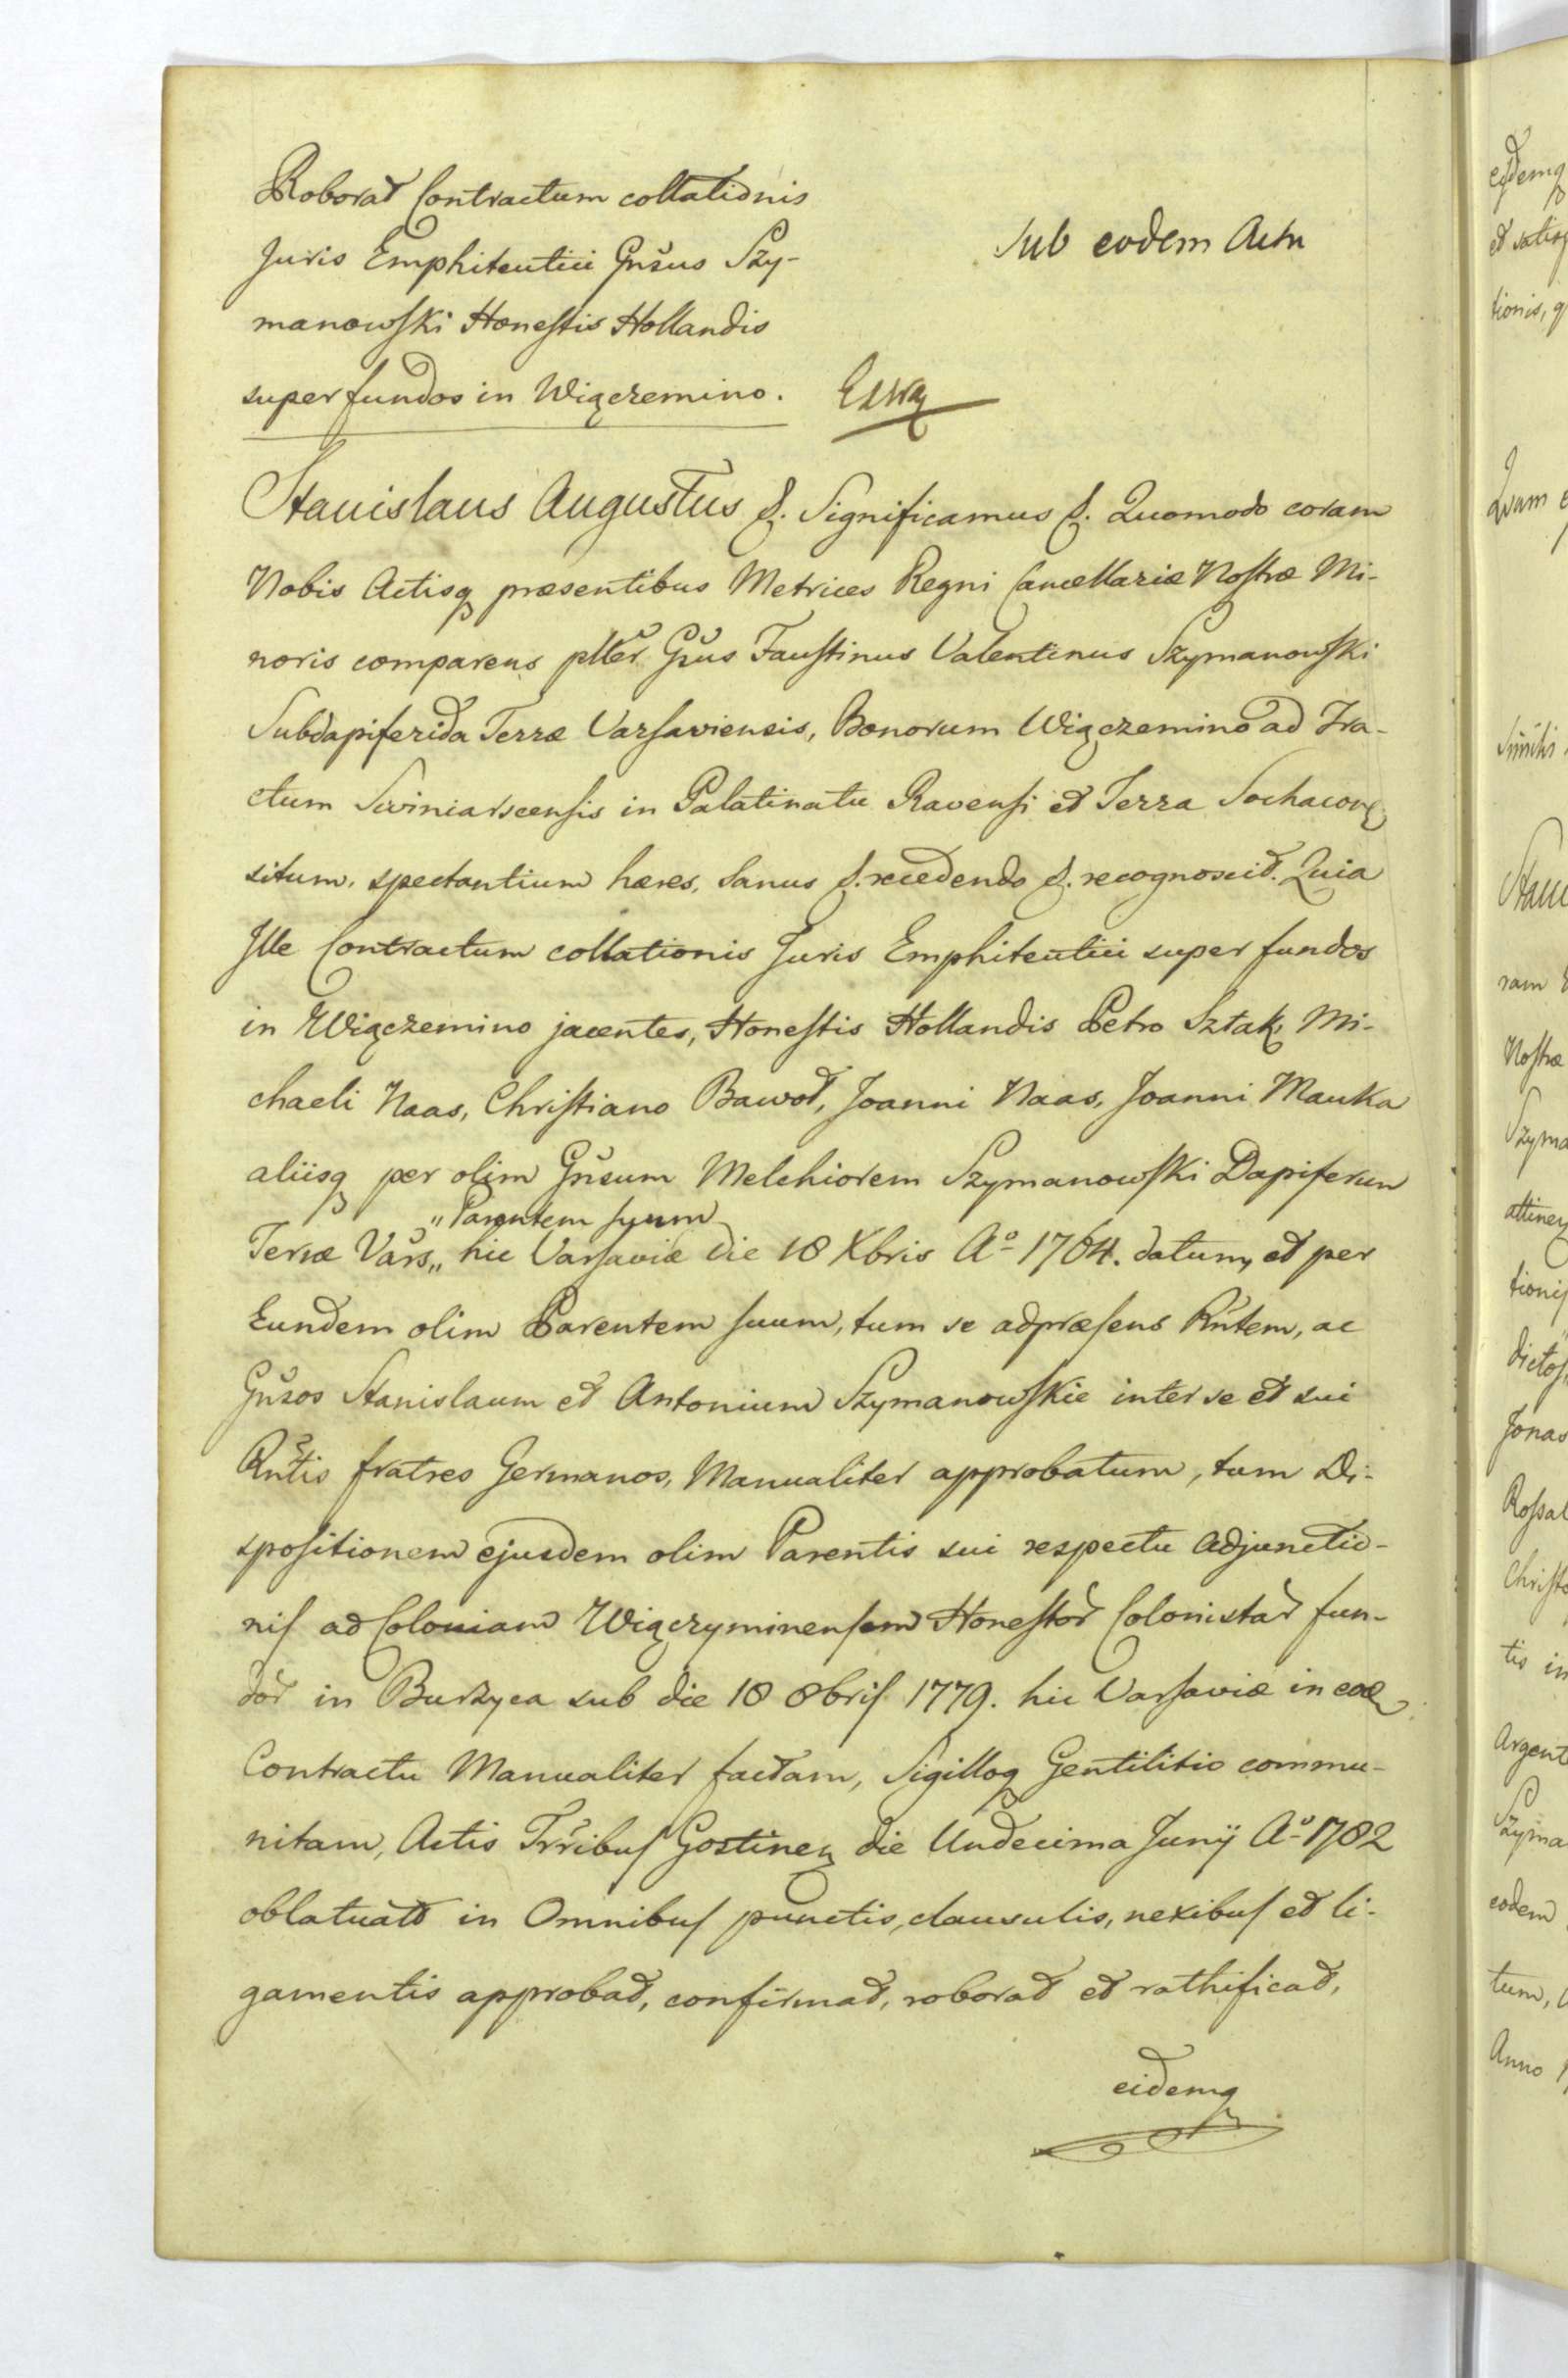 Roborat Contractum collationis
Juris Emphiteutici Gnsus Szy-
manowski Honestis Hollandis
super fundos in Wiączemino.
Sub eodem Actu
Stanislaus Augustus &. Significamus &. Quomodo coram
Nobis Actisq præsentibus Metrices Regni Cancellariæ Nostræ Mi-
noris comparens plter Gsus Faustinus Valentinus Szymanowski
Subdapiferida Terræ Varsaviensis, Bonorum Wiączemino ad Tra-
ctum Swiniarscensis in Palatinatu Ravensi et Terra Sochacov
situm, spectantium hæres, Sanus &. recedendo &. recognoscit. Quia
Ille Contractum collationis Juris Emphiteutici super fundos
in Wiączemino jacentes, Honestis Hollandis Petro Sztak, Mi-
chaeli Naas, Christiano Bawot, Joanni Naas, Joanni Manka
aliisq per olim Gnsum Melchiorem Szymanowski Dapiferum
„Parentem suum
Terræ Vars„ hic Varsaviæ die 18 Xbris Aº 1764. datum, et per
Eundem olim Parentem suum, tum se adpræsens Rntem, ac
Gnsos Stanislaum et Antonium Szymanowskie inter se et sui
Rntis fratres Germanos, Manualiter approbatum, tum Di-
spositionem ejusdem olim Parentis sui respectu Adjunctio-
nis ad Coloniam Wiączyminensem Honestor Colonistar fun-
dor in Burzyca sub die 18 8bris 1779. hic Varsaviæ in eod
Contractu Manualiter factam, Sigilloq Gentilitio commu-
nitam, Actis Trribus Gostinen die Undecima Junÿ Aº 1782
oblatuat in Omnibus punctis, clausulis, nexibus et li-
gamentis approbat, confirmat, roborat et rathificat,
eidemq
eidemq
tionis, q
Quam
Similis
Nostræ
tionis
dictos
Jonas
Christo
tis in
Argent
Szyma
eodem
tum,
Anno